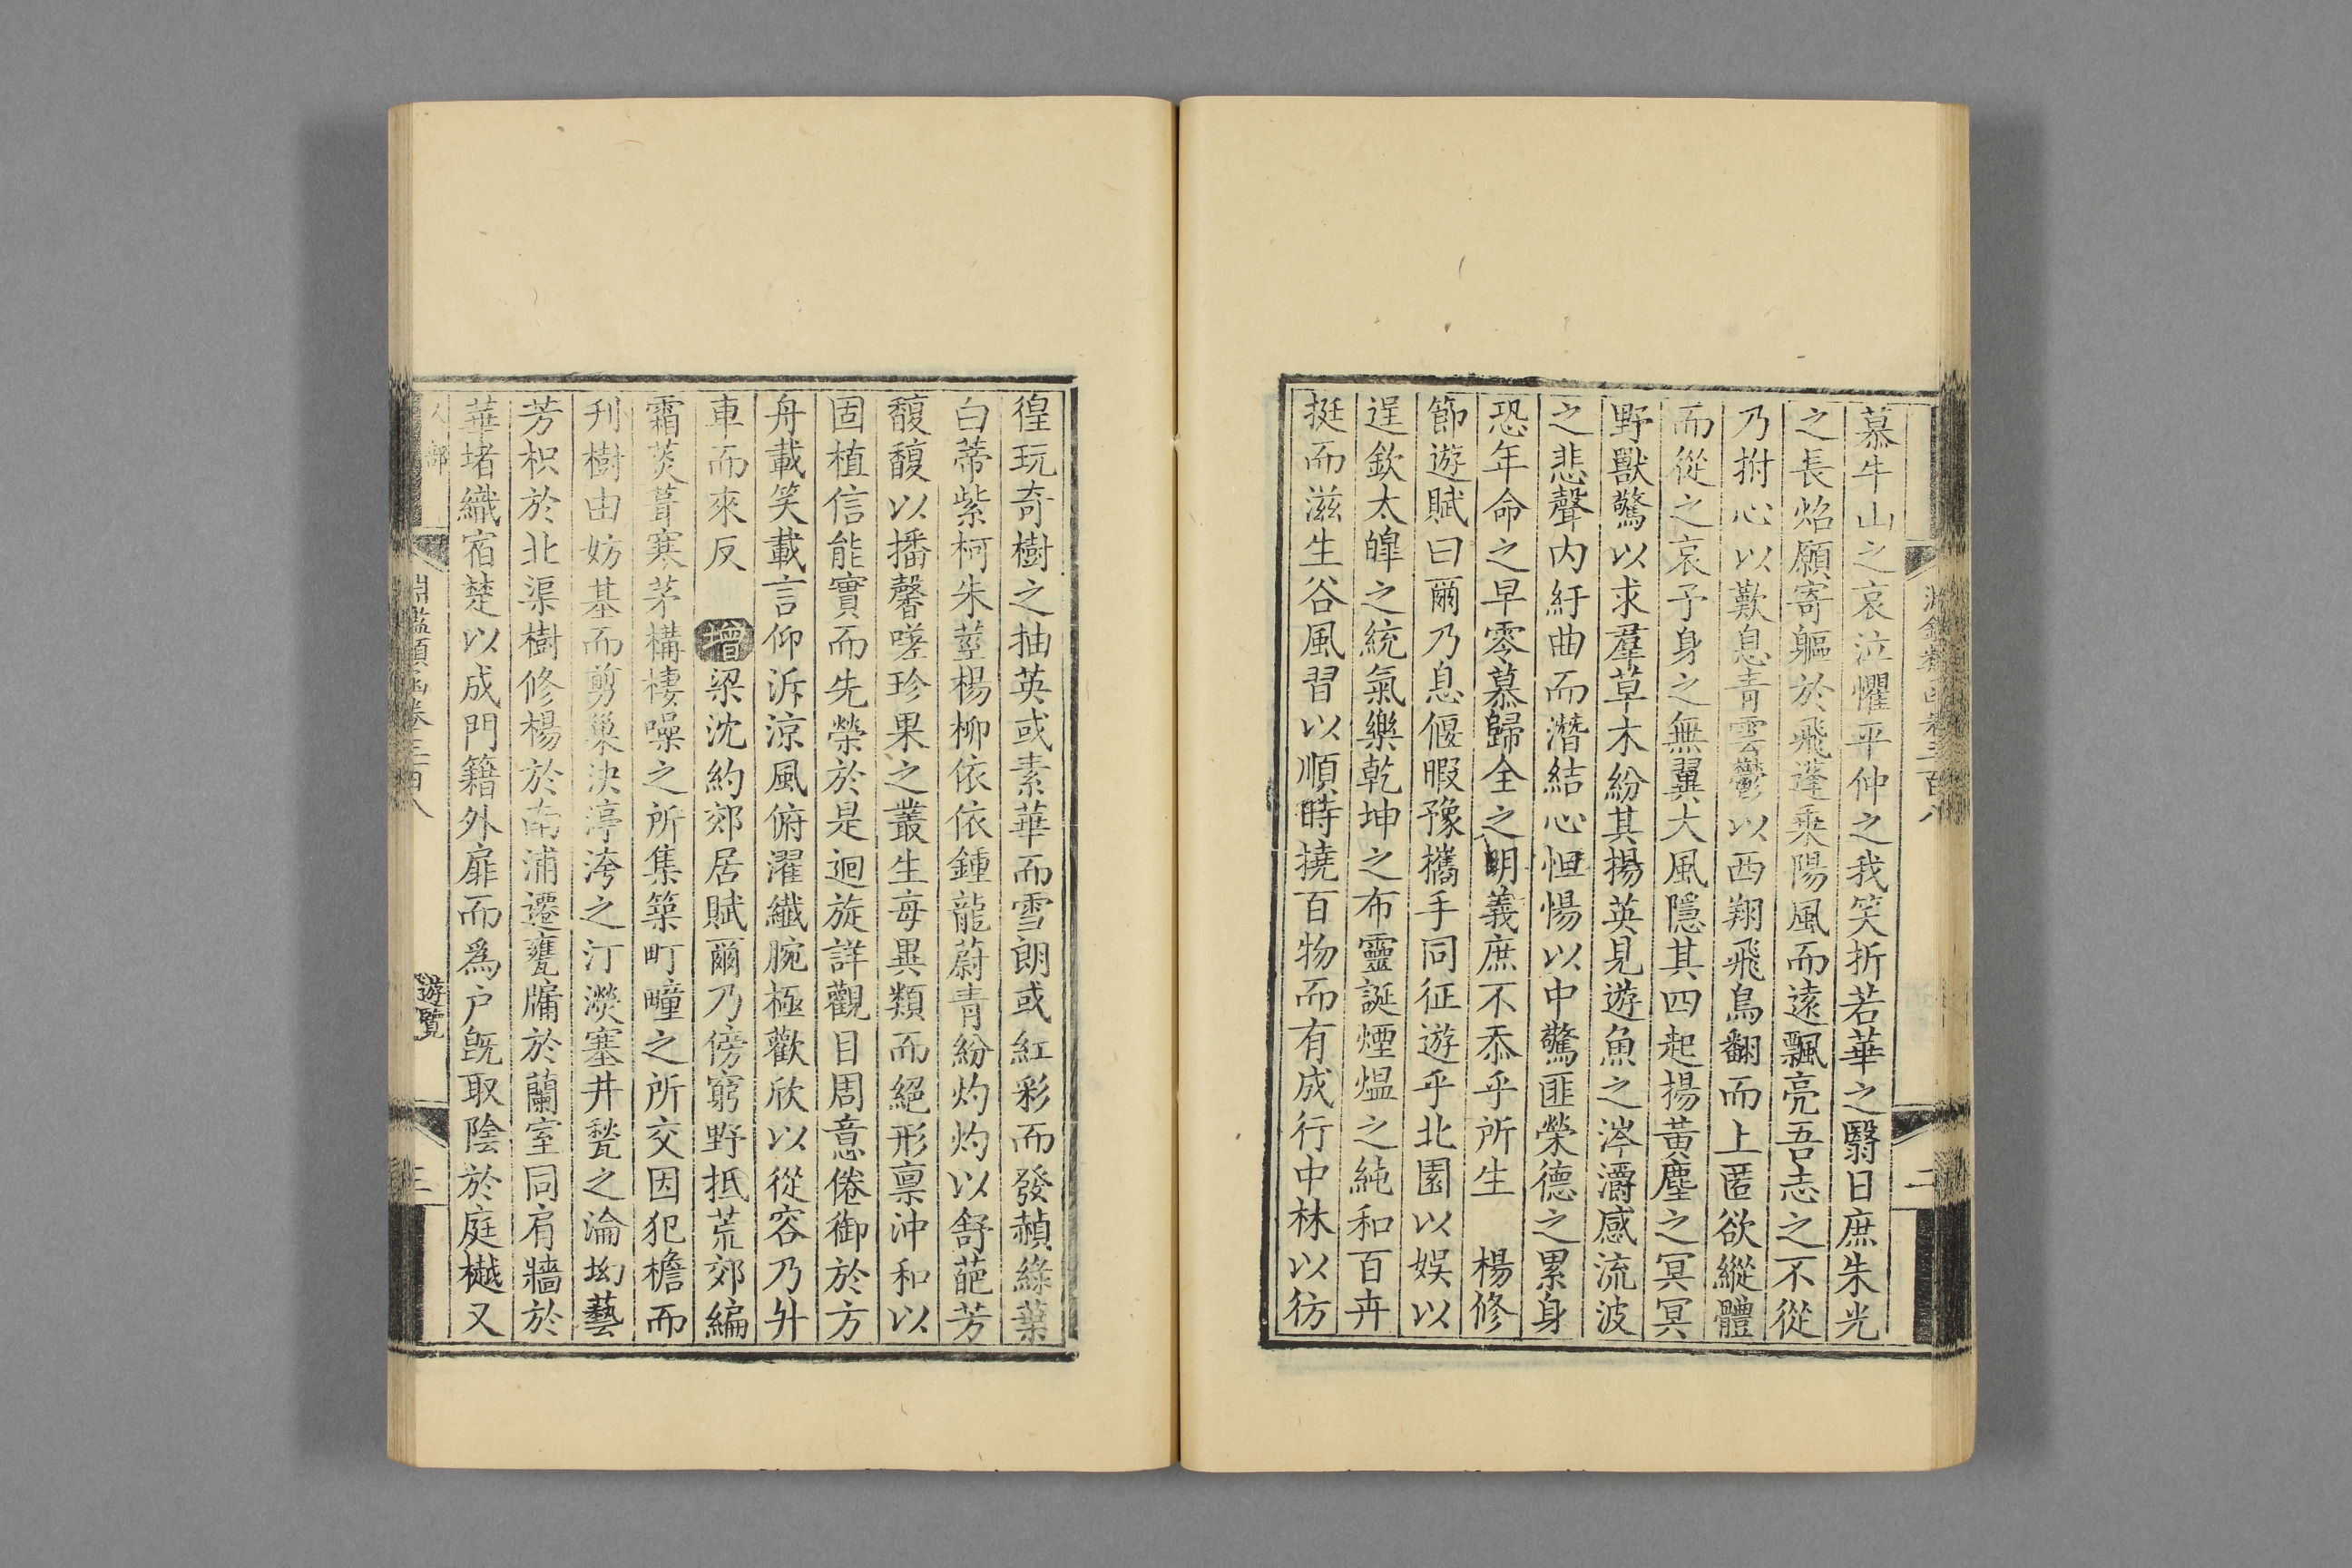 慕牛山之哀泣懼平仲之我笑折若華之翳日庶朱光
之長焰願寄軀於飛蓬乘陽風而遠飄亮吾志之不從
乃拊心以歎息青雲鬱以西翔飛鳥翻而上匿欲縱體
而從之哀予身之無翼大風隱其四起揚黃塵之冥冥
野獸驚以求羣草木紛其揚英見遊魚之涔灂感流波
之悲聲内紆曲而潛結心怛惕以中驚匪榮德之累身
恐年命之早零慕歸全之明義庶不忝乎所生 楊修
節遊賦曰爾乃息偃暇豫攜手同征遊乎北園以娛以
逞欽太皥之統氣樂乾坤之布靈誕煙煴之純和百卉
挺而滋生谷風習以順時撓百物而有成行中林以彷
二
徨玩奇樹之抽英或素華而雪朗或紅彩而發赬綠葉
白蒂紫柯朱莖楊柳依依鍾龍蔚青紛灼灼以舒葩芳
馥馥以播馨嗟珍果之叢生每異類而絕形禀沖和以
固植信能實而先榮於是迴旋詳觀目周意倦御於方
舟載笑載言仰泝涼風俯濯纖腕極歡欣以從容乃升
車而來反 增梁沈約郊居賦爾乃傍窮野抵荒郊編
霜菼葺寒茅構棲噪之所集築町疃之所交因犯檐而
刋樹由妨基而剪巢決渟洿之汀濙塞井甃之淪坳藝
芳枳於北渠樹修楊於南浦遷甕牖於蘭室同肩牆於
華堵織宿楚以成門籍外扉而爲户旣取陰於庭樾又
人部
遊覽
三